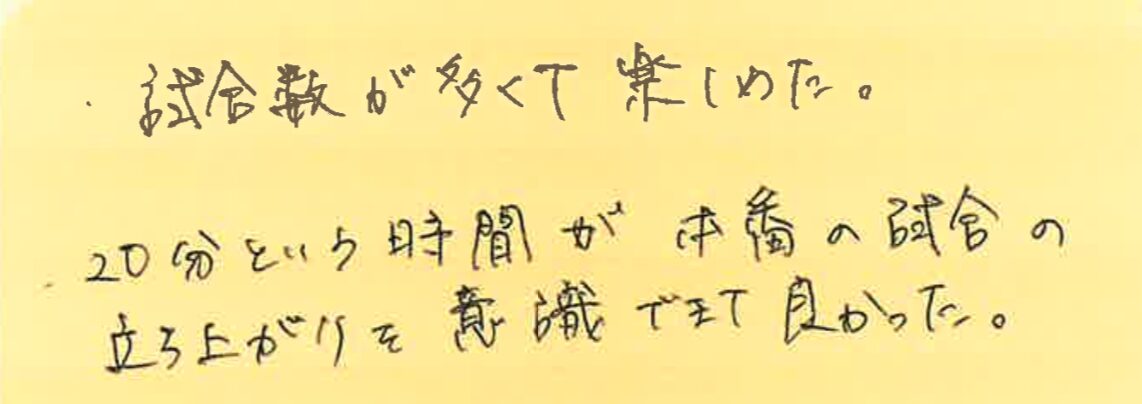 ・試合数が多くて楽しめた。
・20分という時間が本番の試合の
立ち上がりを意識できて良かった。